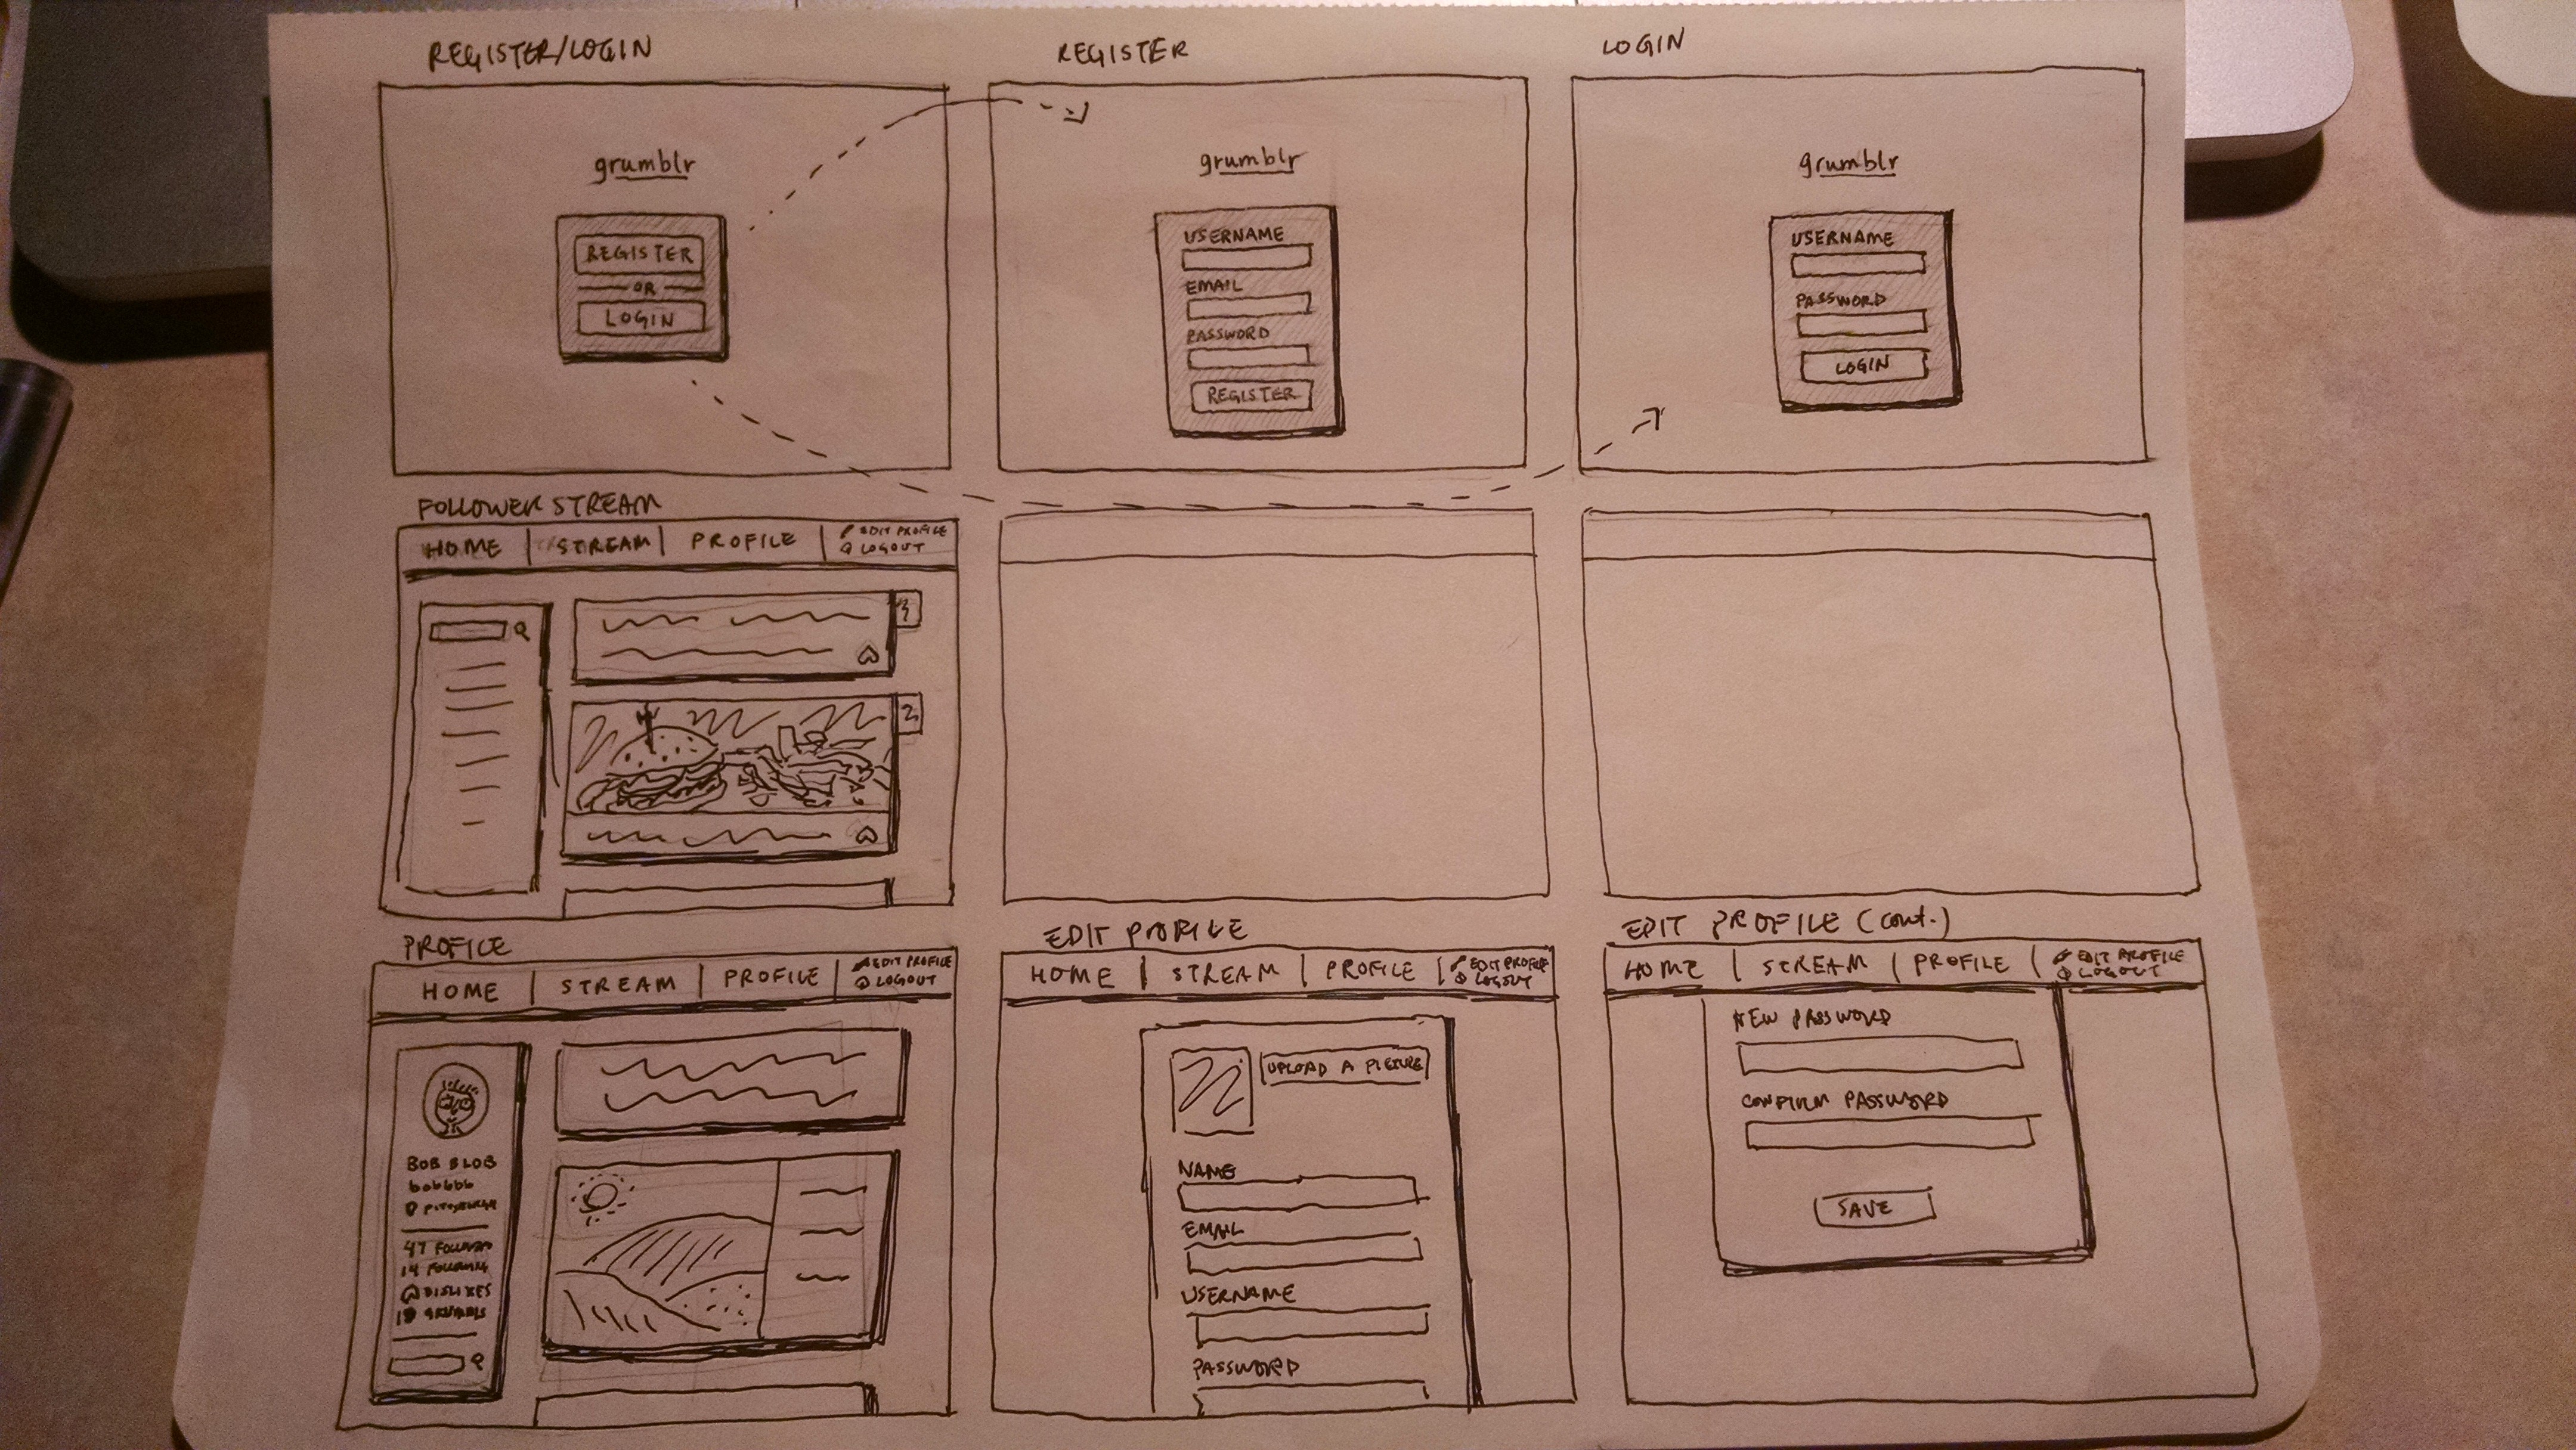 REGISTER/LOGIN
grumblr
REGISTER
OR
LOGIN
REGISTER
grumblr
USERNAME
EMAIL
PASSWORD
REGISTER
LOGIN
grumblr
USERNAME
PASSWORD
LOGIN
FOLLOWER STREAM
HOME STREAM PROFILE EDIT PROFILE
LOGOUT
3
2
PROFILE
HOME STREAM PROFILE EDIT PROFILE
LOGOUT
BOB BLOB
PITTSBURGH
47
14 FOLLOWING
DISLIKES
EDIT PROFILE
HOME STREAM PROFILE EDIT PROFILE
LOGOUT
UPLOAD A PICTURE
NAME
EMAIL
USERNAME
PASSWORD
EDIT PROFILE (cont.)
HOME STREAM PROFILE EDIT PROFILE
LOGOUT
NEW PASSWORD
CONFIRM PASSWORD
SAVE